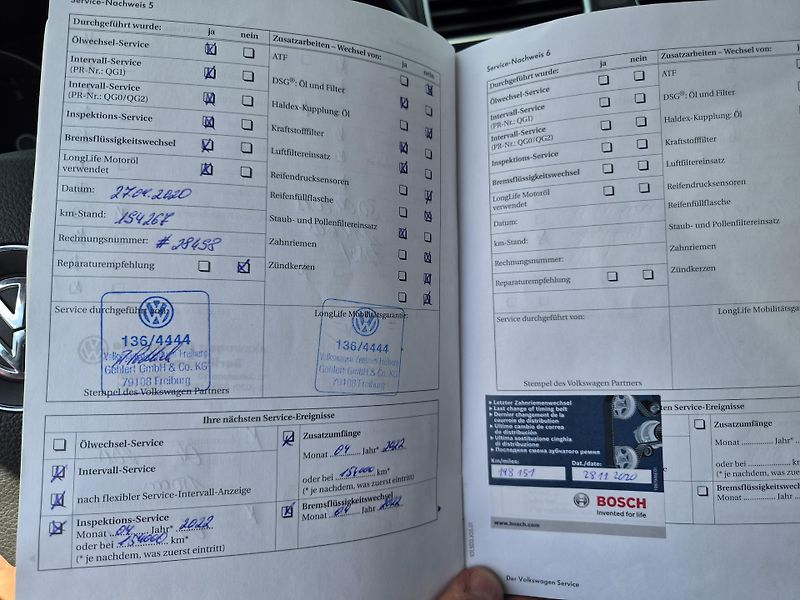 Service-Nachweis 5
Durchgeführt wurde: ja nein
Ölwechsel-Service
Intervall-Service
(PR-Nr.: QG1)
Intervall-Service
(PR-Nr.: QG0/QG2)
Inspektions-Service
Bremsflüssigkeitswechsel
LongLife Motoröl
verwendet
Datum: 27.04.2020
km-Stand:
Rechnungsnummer: # 29498
Reparaturempfehlung
Zusatzarbeiten – Wechsel von: ja nein
ATF
DSG®: Öl und Filter
Haldex-Kupplung: Öl
Kraftstofffilter
Luftfiltereinsatz
Reifendrucksensoren
Reifenfüllflasche
Staub- und Pollenfiltereinsatz
Zahnriemen
Zündkerzen
Service durchgeführt von:
136/4444
Volkswagen Zentrum Freiburg
Gehlert GmbH & Co. KG
79108 Freiburg
Stempel des Volkswagen Partners
LongLife Mobilitätsgarantie:
136/4444
Volkswagen Zentrum Freiburg
Gehlert GmbH & Co. KG
79108 Freiburg
Ihre nächsten Service-Ereignisse
Ölwechsel-Service
Intervall-Service
nach flexibler Service-Intervall-Anzeige
Inspektions-Service
Monat 04 Jahr* 2022
oder bei km*
(* je nachdem, was zuerst eintritt)
Zusatzumfänge
Monat 04 Jahr* 2022
oder bei km*
(* je nachdem, was zuerst eintritt)
Bremsflüssigkeitswechsel
Monat 04 Jahr 2022
Service-Nachweis 6
Durchgeführt wurde: ja nein
Ölwechsel-Service
Intervall-Service
(PR-Nr.: QG1)
Intervall-Service
(PR-Nr.: QG0/QG2)
Inspektions-Service
Bremsflüssigkeitswechsel
LongLife Motoröl
verwendet
Datum:
km-Stand:
Rechnungsnummer:
Reparaturempfehlung
Zusatzarbeiten – Wechsel von:
ATF
DSG®: Öl und Filter
Haldex-Kupplung: Öl
Kraftstofffilter
Luftfiltereinsatz
Reifendrucksensoren
Reifenfüllflasche
Staub- und Pollenfiltereinsatz
Zahnriemen
Zündkerzen
Service durchgeführt von:
LongLife Mobilitätsga
Stempel des Volkswagen Partners
Letzter Zahnriemenwechsel
Last change of timing belt
Dernier changement de la
courroie de distribution
Ultimo cambio de correa
de distribución
Ultima sostituzione cinghia
di distribuzione
Последняя смена зубчатого ремня
Km/miles: 148 151
Dat./date: 28.11.2020
BOSCH
Invented for life
www.bosch.com
en Service-Ereignisse
Zusatzumfänge
Monat Jahr*
oder bei km
(* je nachdem, was
Bremsflüssigkeits
Monat Jah
Der Volkswagen Service